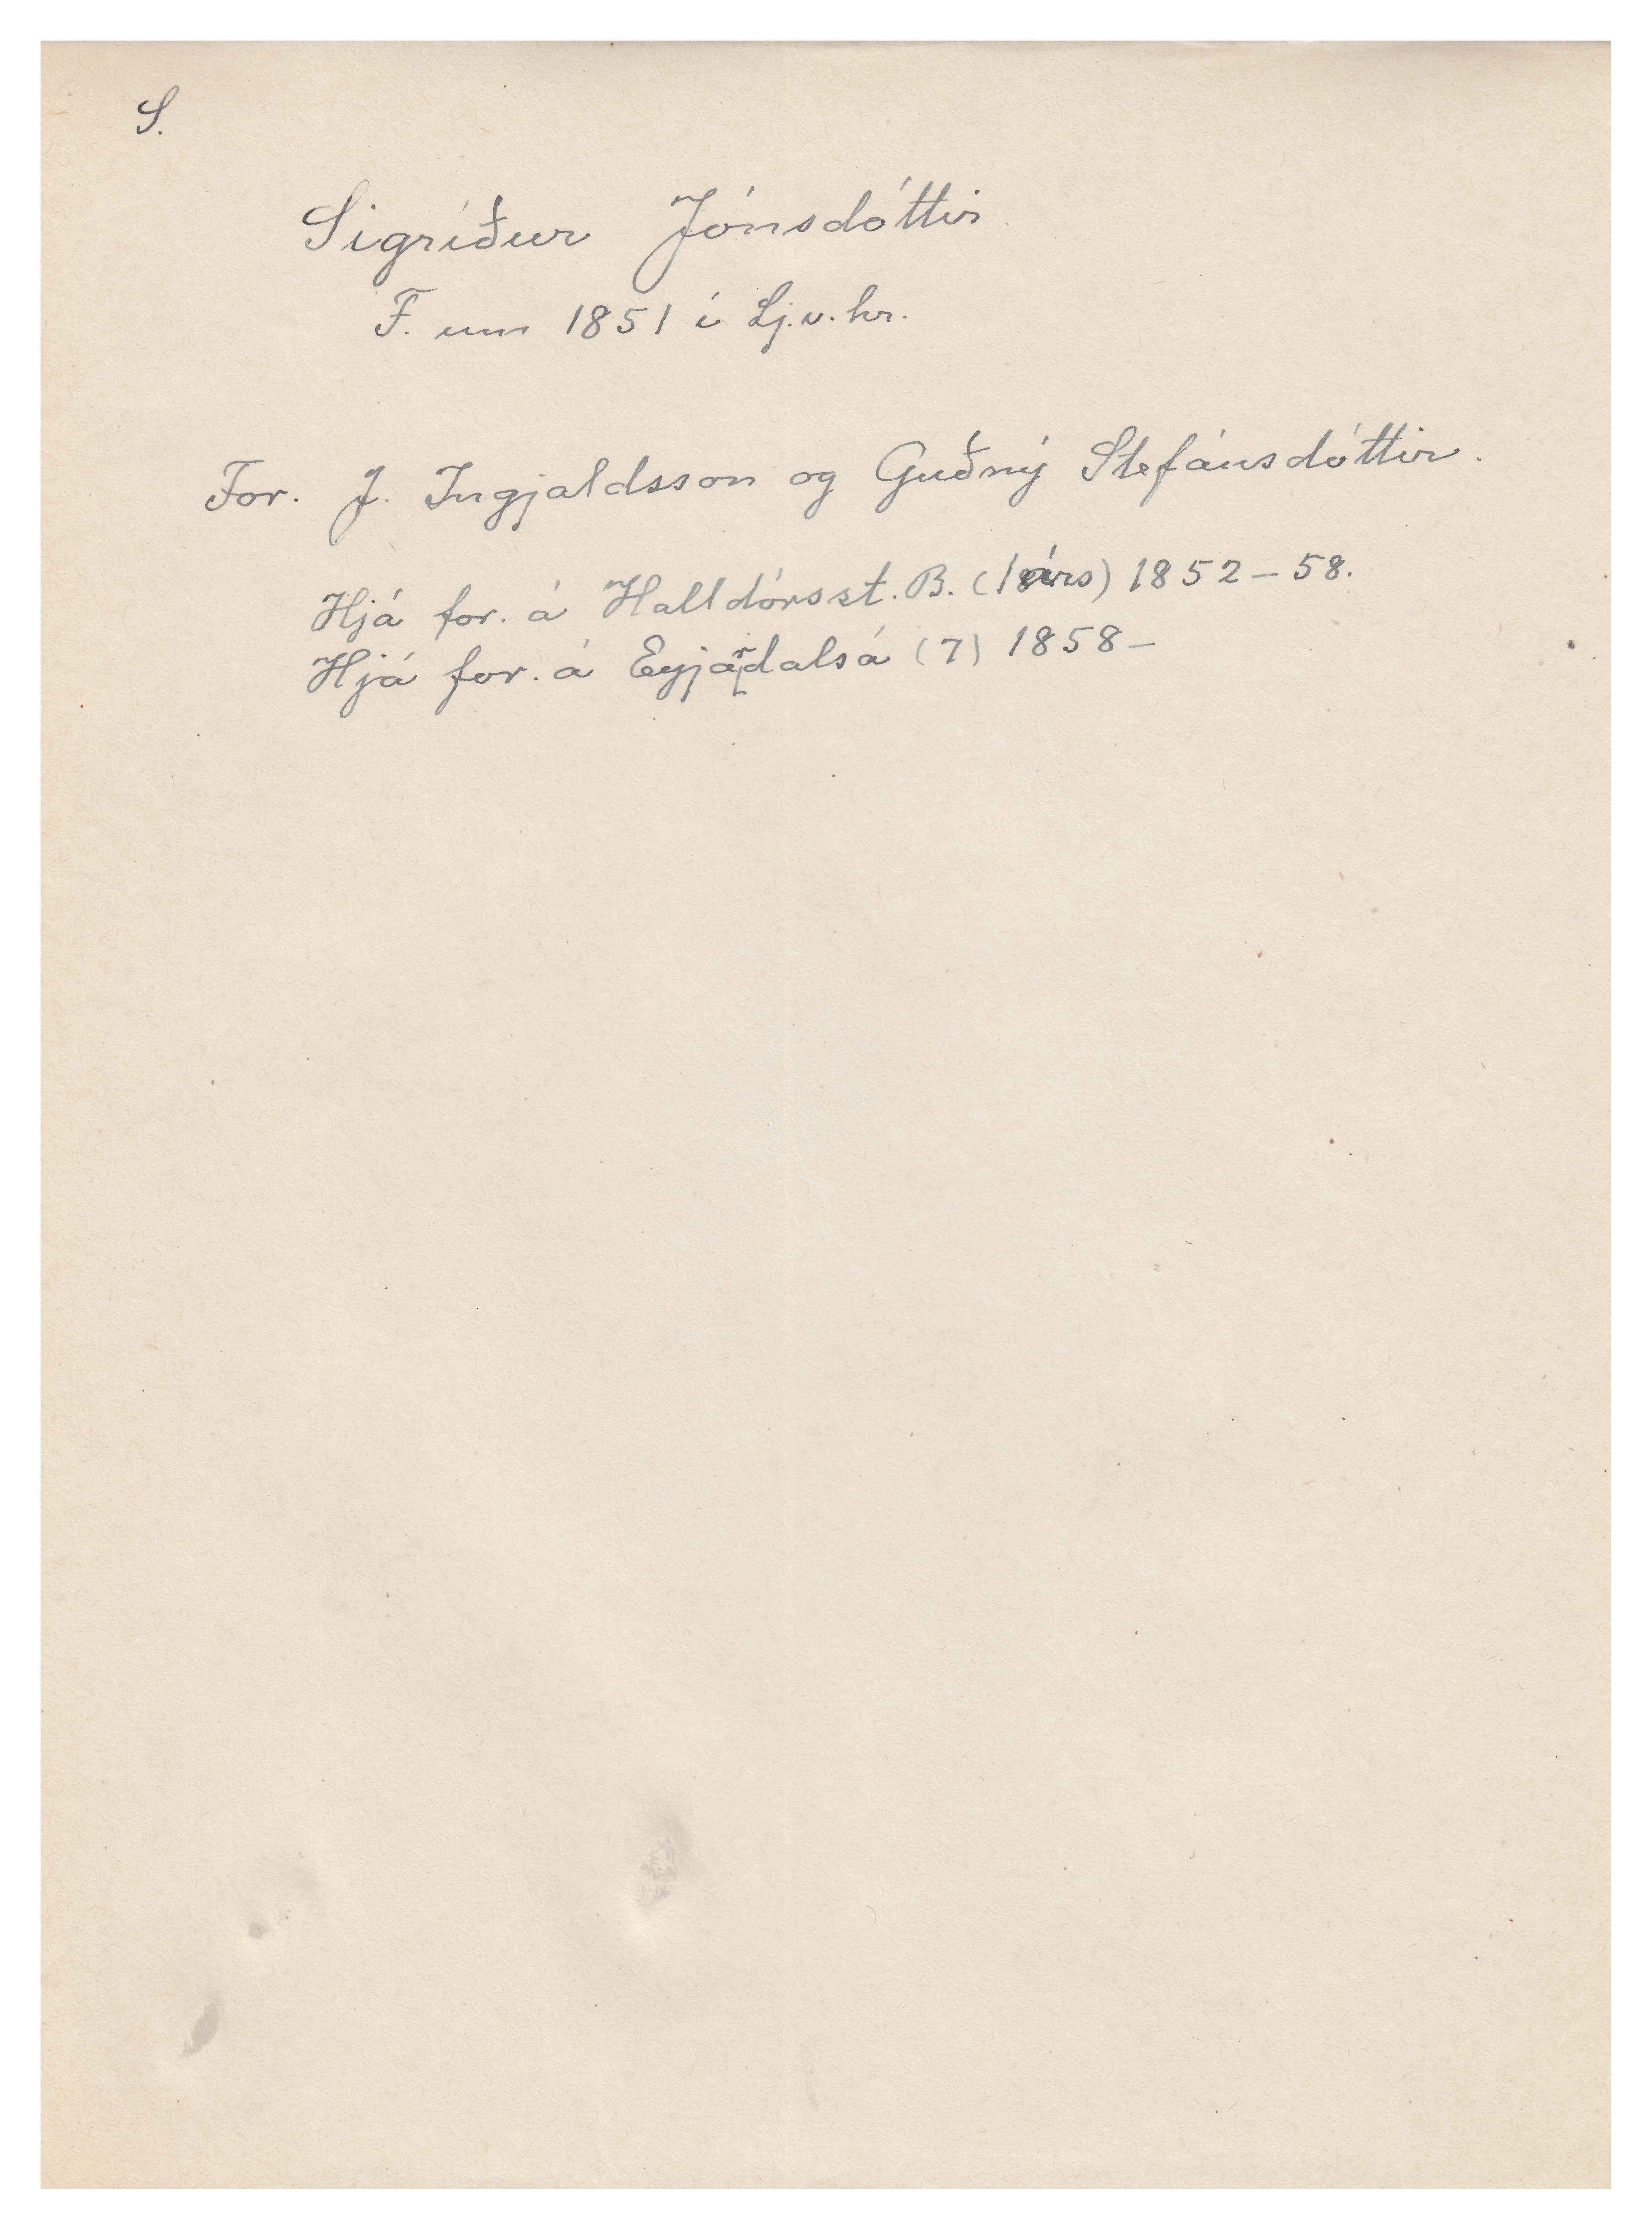 S.
Sigríður Jónsdóttir
F. um 1851 í Lj.v.hr.
For. J. Ingjaldsson og Guðný Stefánsdóttir.
Hjá for. á Halldórsst. B. (1 árs) 1852-58.
Hjá for. á Eyjardalsá (7) 1858-